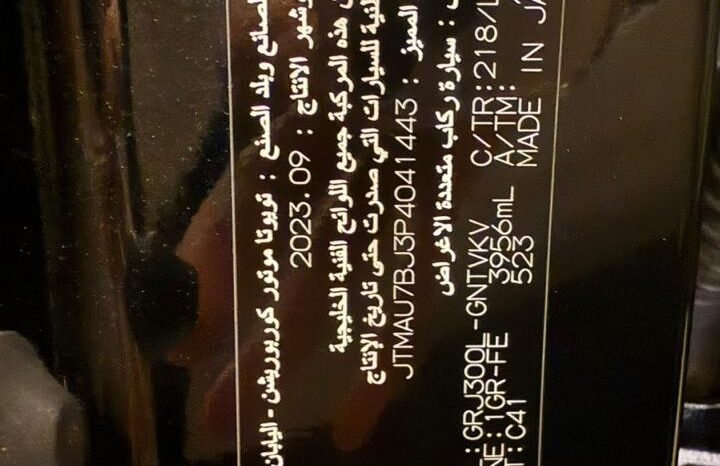 الصانع وبلد الصنع : تويوتا موتور كوربوريشن - اليابان
وشهر الانتاج : 2023.09
هذه المركبة جميع اللوائح الفنية الخليجية
للسيارات التي صدرت حتى تاريخ الإنتاج
المميز : JTMAU7BJ3P4041443
: سيارة ركاب متعددة الاغراض
:GRJ300L-GNTVKV C/TR:218/L
NE:1GR-FE 3956mL A/TM:
T:C41 523 MADE IN JA